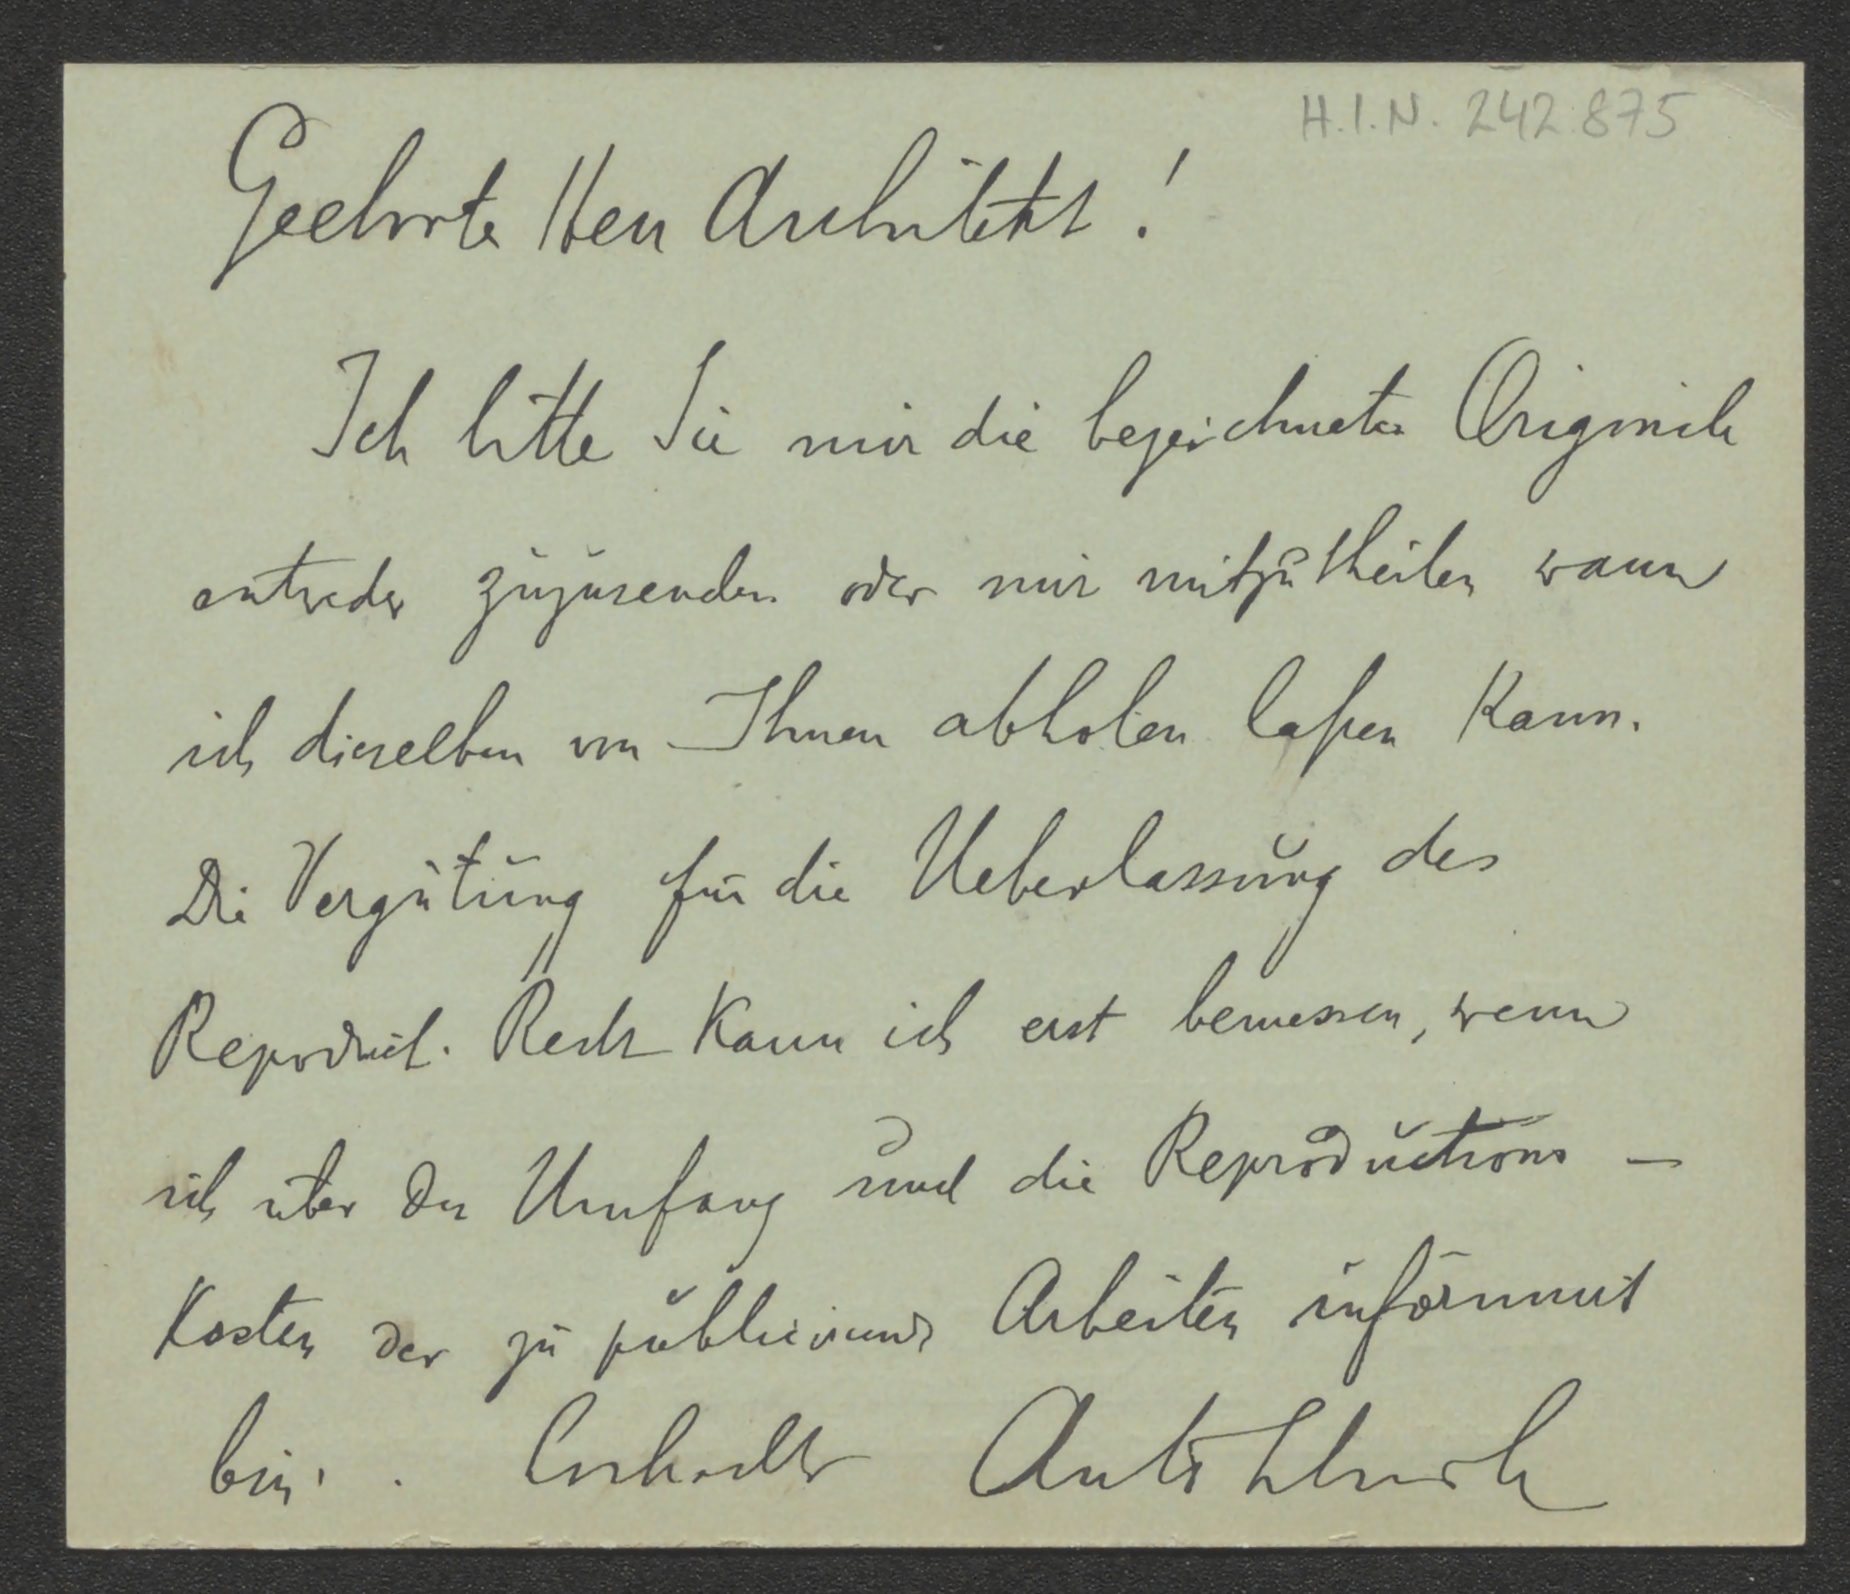 H.I.N. 242.875
Geehrter Herr Architekt!
Ich bitte Sie mir die bezeichneten Originale
entweder zuzusenden oder mir mitzutheilen wann
ich dieselben von Ihnen abholen laßen kann.
Die Vergütung für die Ueberlassung des
Reproduct. Rechts kann ich erst bemessen, wenn
ich über den Umfang und die Reproductions –
Kosten der zu publicirenden Arbeiten informirt
bin.